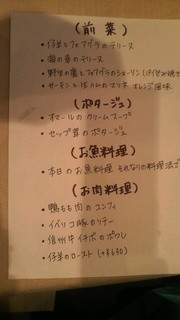 (前菜)
・仔羊とフォアグラのテリーヌ
・海の幸のテリーヌ
・野生の鷹とフォアグラの
・サーモンと オレンジ風味
(ポタージュ)
・オマールのクリームスープ
・セップ茸のポタージュ
(お魚料理)
・本日のお魚料理 それなりの料理法で
(お肉料理)
・鴨もも肉のコンフィ
・イベリコ豚のソテー
・信州牛イチボのポワレ
・仔羊のロースト (+¥630)